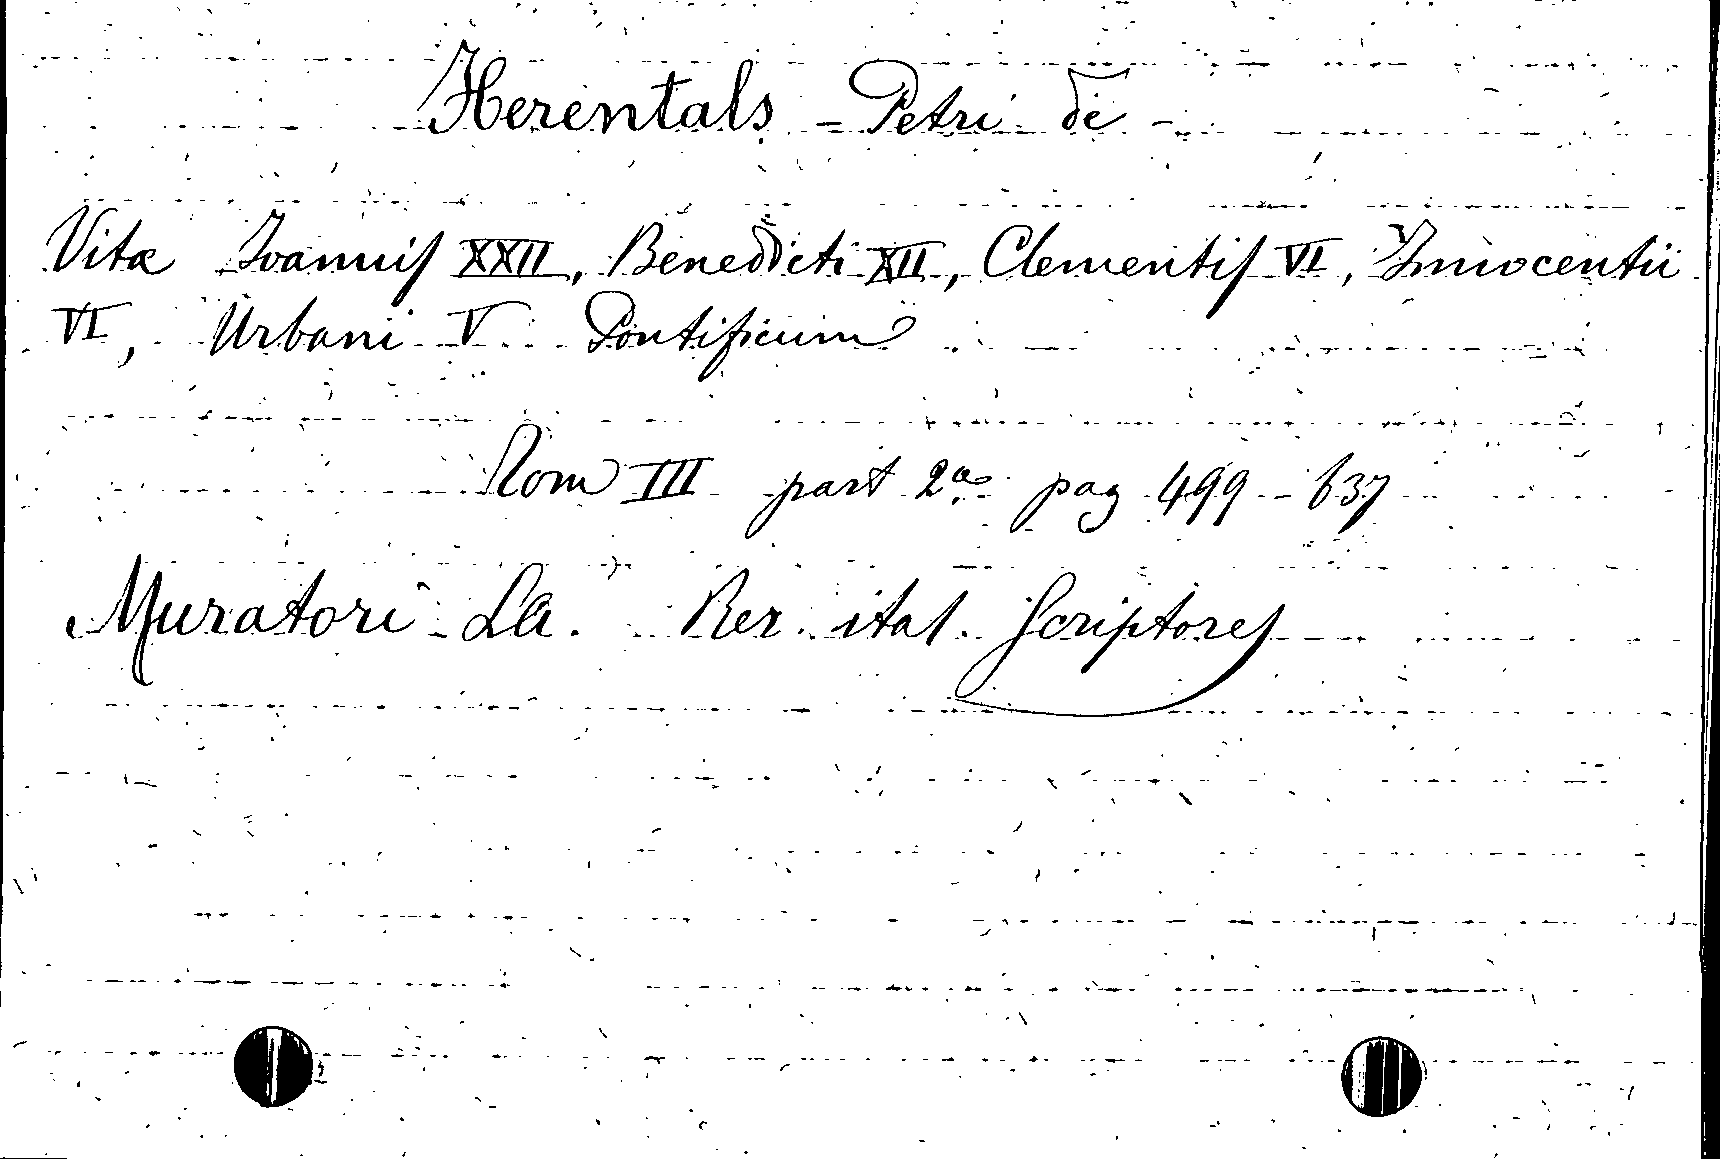 Herentals - Petri de -
Vitæ Ioannis XXII, Benedicti XII, Clementis VI, Innocentii
VI, Urbani V Pontificum
Tom III part 2ª pag 499 - 637
Muratori La. Rer. ital. Scriptores